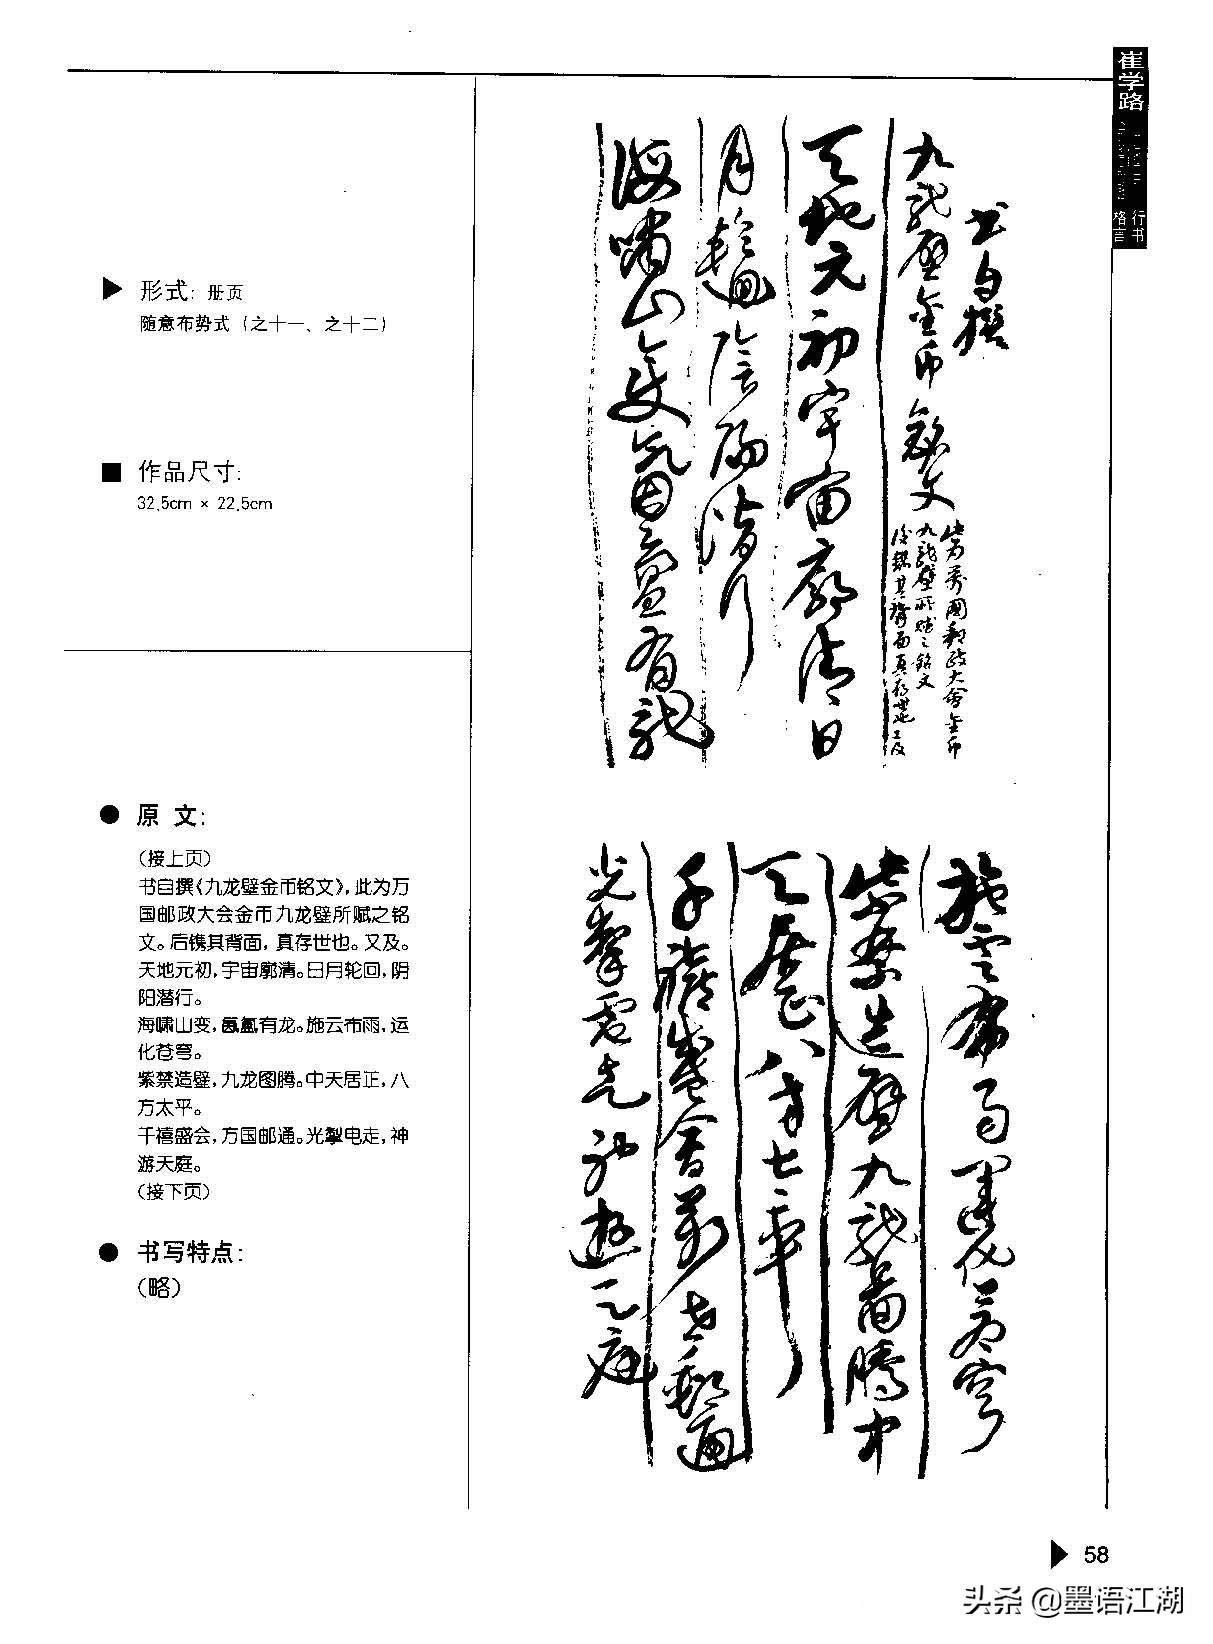 崔学路
行书
格言
▶ 形式: 册页
随意布势式 (之十一、之十二)
■ 作品尺寸:
32.5cm × 22.5cm
● 原 文:
(接上页)
书自撰《九龙壁金币铭文》，此为万
国邮政大会金币九龙壁所赋之铭
文。后镌其背面，真存世也。又及。
天地元初，宇宙郭清。日月轮回，阴
阳潜行。
海啸山变，氤氲有龙。施云布雨，运
化苍穹。
紫禁造壁，九龙图腾。中天居正，八
方太平。
千禧盛会，万国邮通。光掣电走，神
游天庭。
(接下页)
● 书写特点:
(略)
书自撰
九龙壁金币铭文
此为万國郵政大會金币
九龙壁所赋之铭文
后镌其背面真存世也 又及
天地元初宇宙廓清日
月轮回陰陽潜行
海啸山变氤氲有龙
施雲布雨運化苍穹
紫禁造壁九龙圖騰中
天居正八方太平
千禧盛會萬國郵通
光掣電走神遊天庭
▶ 58
头条 @墨语江湖